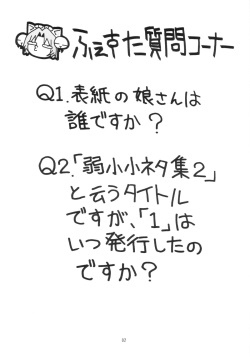 ふぇすた質問コーナー
Q1.表紙の娘さんは
誰ですか？
Q2.「弱小小ネタ集2」
と云うタイトル
ですが、「1」は
いつ発行したの
ですか？